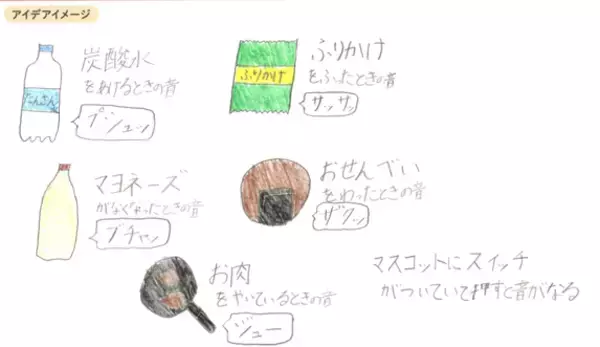 アイデアイメージ
炭酸水
をあけるときの音
プシュッ
たんさん
ふりかけ
をふったときの音
サッサッ
ふりかけ
マヨネーズ
がなくなったときの音
ブチャッ
おせんべい
をわったときの音
ザクッ
お肉
をやいているときの音
ジュー
マスコットにスイッチ
がついていて押すと音がなる